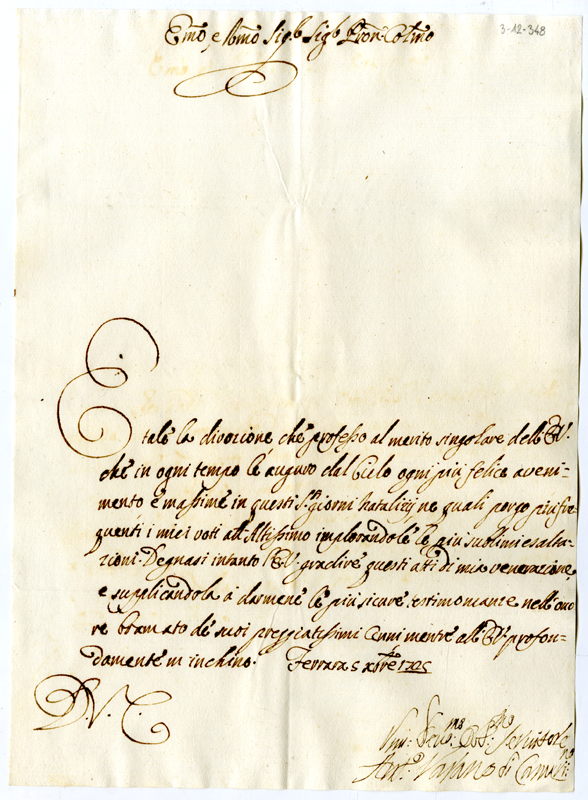 3-12-348
Emo, e Rmo Sig.r Sig.r Pron Colmo
E tale la divozione che professo al merito singolare dell'E.V.
che in ogni tempo le auguro dal Cielo ogni più felice aveni=
mento e massime in questi S.ti giorni Natalizij ne quali porgo più fre=
quenti i miei voti all'Altissimo implorandole le più sublimi esalta=
zioni. Degnasi intanto l'E.V. gradire questi atti di mia venerazione,
e supplicandola à darmene le più sicure testimonianze nell'ono=
re bramato de suoi preggiatissimi Cenni mentre all'E.V. profon=
damente m'inchino. Ferrara 5 Xbre 1725
D.V.E.
Umi: Devo.mo Servitore
Ant.o di